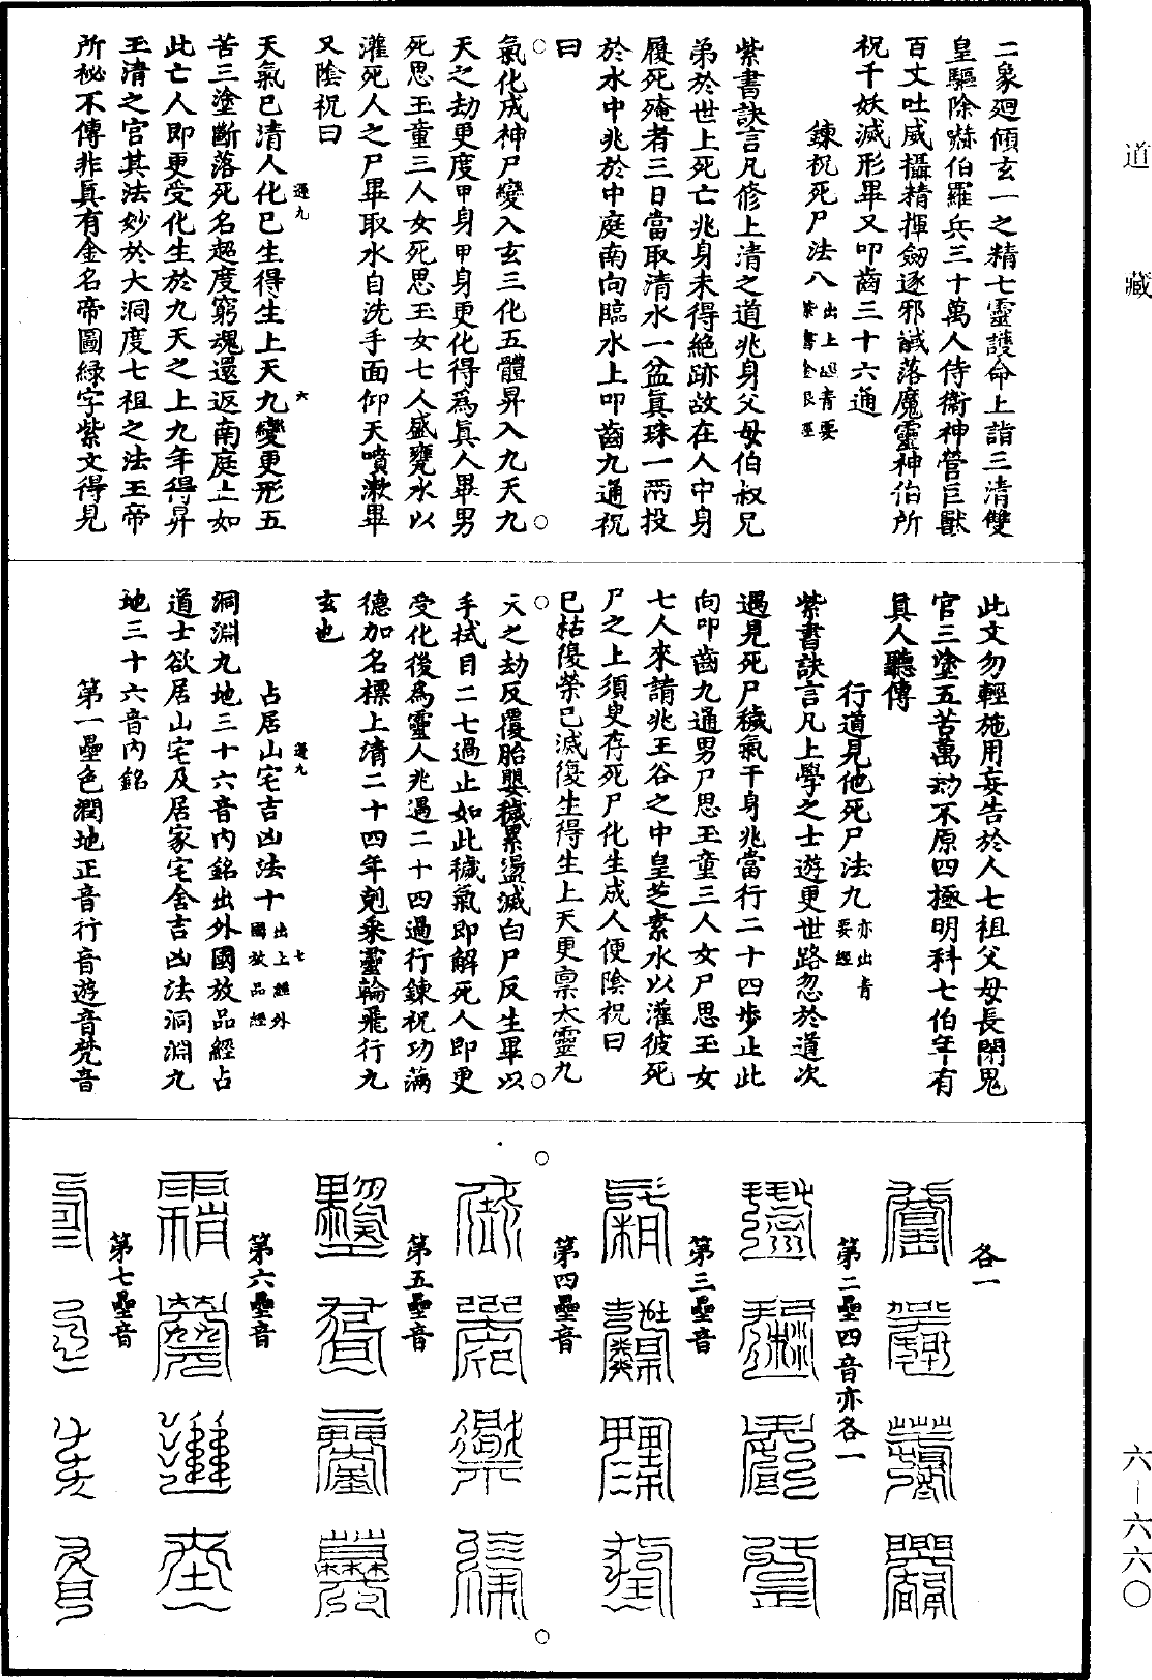 道藏
二象廻傾玄一之精七靈護命上詣三清雙
皇驅除赫伯羅兵三十萬人侍衛神營巨獸
百丈吐威攝精揮劒逐邪馘落魔靈神伯所
祝千妖滅形畢又叩齒三十六通
鍊祝死尸法八出上清青要
紫書金根經
紫書訣言凡修上清之道兆身父母伯叔兄
弟於世上死亡兆身未得絕跡故在人中身
履死殗者三日當取清水一盆真珠一兩投
於水中兆於中庭南向臨水上叩齒九通祝
曰
氣化成神尸變入玄三化五體昇入九天九
天之劫更度甲身甲身更化得為真人畢男
死思玉童三人女死思玉女七人盛甕水以
灌死人之尸畢取水自洗手面仰天噴漱畢
又陰祝曰
遜九 六
天氣已清人化已生得生上天九變更形五
苦三塗斷落死名超度窮魂還返南庭止如
此亡人即更受化生於九天之上九年得昇
玉清之宮其法妙於大洞度七祖之法玉帝
所祕不傳非真有金名帝圖綠字紫文得見
此文勿輕施用妄告於人七祖父母長閉鬼
官三塗五苦萬劫不原四極明科七伯年有
真人聽傳
行道見他死尸法九亦出青
要經
紫書訣言凡上學之士遊更世路忽於道次
遇見死尸穢氣干身兆當行二十四步止此
向叩齒九通男尸思玉童三人女尸思玉女
七人來請兆玉谷之中皇芝素水以灌彼死
尸之上須臾存死尸化生成人便陰祝曰
已枯復榮已滅復生得生上天更稟太靈九
天之劫反覆胎嬰穢累盪滅白尸反生畢以
手拭目二七過止如此穢氣即解死人即更
受化後為靈人兆過二十四過行鍊祝功滿
德加名標上清二十四年剋乘靈輪飛行九
玄也
遜九 七
占居山宅吉凶法十出上經外
國放品經
洞淵九地三十六音內銘出外國放品經占
道士欲居山宅及居家宅舍吉凶法洞淵九
地三十六音內銘
第一壘色潤地正音行音遊音梵音
各一
第二壘四音亦各一
第三壘音
第四壘音
第五壘音
第六壘音
第七壘音
六—六六〇